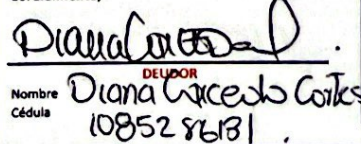 Diana
DEUDOR
Nombre Diana Caicedo Cortes
Cédula 1085286131